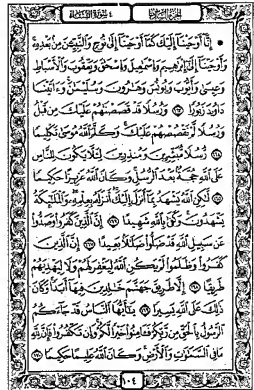 الجزء السادس ٤ سورة النساء
۞ إِنَّا أَوْحَيْنَا إِلَيْكَ كَمَا أَوْحَيْنَا إِلَىٰ نُوحٍ وَالنَّبِيِّينَ مِنْ بَعْدِهِ
وَأَوْحَيْنَا إِلَىٰ إِبْرَٰهِيمَ وَإِسْمَٰعِيلَ وَإِسْحَٰقَ وَيَعْقُوبَ وَالْأَسْبَاطِ
وَعِيسَىٰ وَأَيُّوبَ وَيُونُسَ وَهَٰرُونَ وَسُلَيْمَٰنَ وَءَاتَيْنَا
دَاوُۥدَ زَبُورًا ١٦٣ وَرُسُلًا قَدْ قَصَصْنَٰهُمْ عَلَيْكَ مِنْ قَبْلُ
وَرُسُلًا لَمْ نَقْصُصْهُمْ عَلَيْكَ وَكَلَّمَ اللَّهُ مُوسَىٰ تَكْلِيمًا
١٦٤ رُسُلًا مُبَشِّرِينَ وَمُنْذِرِينَ لِئَلَّا يَكُونَ لِلنَّاسِ
عَلَى اللَّهِ حُجَّةٌ بَعْدَ الرُّسُلِ وَكَانَ اللَّهُ عَزِيزًا حَكِيمًا
١٦٥ لَٰكِنِ اللَّهُ يَشْهَدُ بِمَا أَنْزَلَ إِلَيْكَ أَنْزَلَهُ بِعِلْمِهِ وَالْمَلَٰئِكَةُ
يَشْهَدُونَ وَكَفَىٰ بِاللَّهِ شَهِيدًا ١٦٦ إِنَّ الَّذِينَ كَفَرُوا وَصَدُّوا
عَنْ سَبِيلِ اللَّهِ قَدْ ضَلُّوا ضَلَٰلًا بَعِيدًا ١٦٧ إِنَّ الَّذِينَ
كَفَرُوا وَظَلَمُوا لَمْ يَكُنِ اللَّهُ لِيَغْفِرَ لَهُمْ وَلَا لِيَهْدِيَهُمْ
طَرِيقًا ١٦٨ إِلَّا طَرِيقَ جَهَنَّمَ خَٰلِدِينَ فِيهَا أَبَدًا وَكَانَ
ذَٰلِكَ عَلَى اللَّهِ يَسِيرًا ١٦٩ يَٰأَيُّهَا النَّاسُ قَدْ جَاءَكُمُ
الرَّسُولُ بِالْحَقِّ مِنْ رَبِّكُمْ فَـَٔامِنُوا خَيْرًا لَكُمْ وَإِنْ تَكْفُرُوا فَإِنَّ لِلَّهِ
مَا فِي السَّمَٰوَٰتِ وَالْأَرْضِ وَكَانَ اللَّهُ عَلِيمًا حَكِيمًا ١٧٠
١٠٤